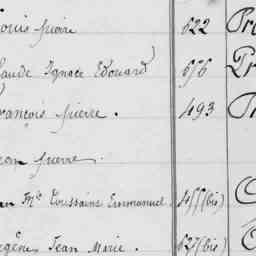 Louis pierre 622 Pr
laude Ignace Edouard 656 Pr
rançois pierre. 493
ean pierre.
n Mie Toussaint Emmanuel. 455 (bis)
ugène Jean Marie. 627 (bis)